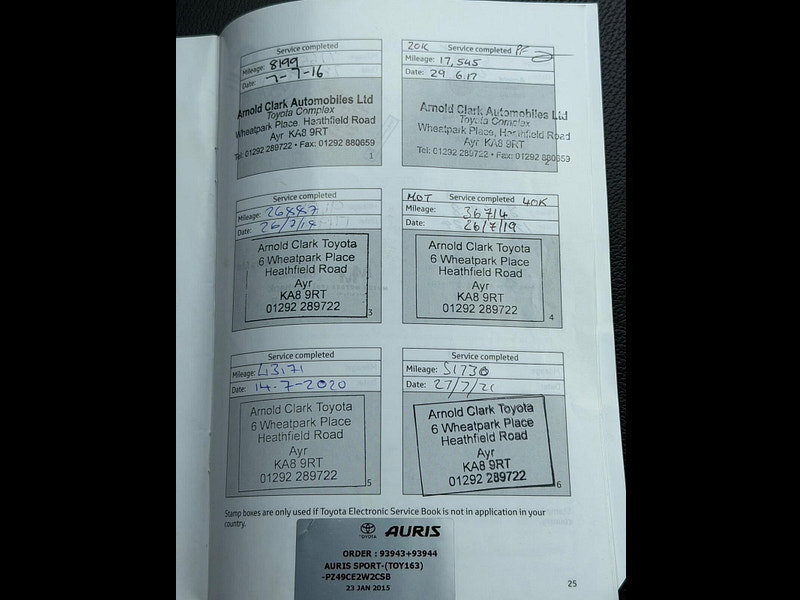 Service completed
Mileage: 8199
Date: 7-7-16
Arnold Clark Automobiles Ltd
Toyota Complex
Wheatpark Place, Heathfield Road
Ayr KA8 9RT
Tel: 01292 289722 • Fax: 01292 880859
1
20K Service completed
Mileage: 17,545
Date: 29.6.17
Arnold Clark Automobiles Ltd
Toyota Complex
Wheatpark Place, Heathfield Road
Ayr KA8 9RT
Tel: 01292 289722 • Fax: 01292 880859
2
Service completed
Mileage: 26887
Date: 26/7/18
Arnold Clark Toyota
6 Wheatpark Place
Heathfield Road
Ayr
KA8 9RT
01292 289722
3
MOT Service completed 40K
Mileage: 36714
Date: 26/7/19
Arnold Clark Toyota
6 Wheatpark Place
Heathfield Road
Ayr
KA8 9RT
01292 289722
4
Service completed
Mileage: 43171
Date: 14-7-2020
Arnold Clark Toyota
6 Wheatpark Place
Heathfield Road
Ayr
KA8 9RT
01292 289722
5
Service completed
Mileage: 51730
Date: 27/7/21
Arnold Clark Toyota
6 Wheatpark Place
Heathfield Road
Ayr
KA8 9RT
01292 289722
6
Stamp boxes are only used if Toyota Electronic Service Book is not in application in your
country.
TOYOTA AURIS
ORDER : 93943+93944
AURIS SPORT-(TOY163)
-PZ49CE2W2CSB
23 JAN 2015
25